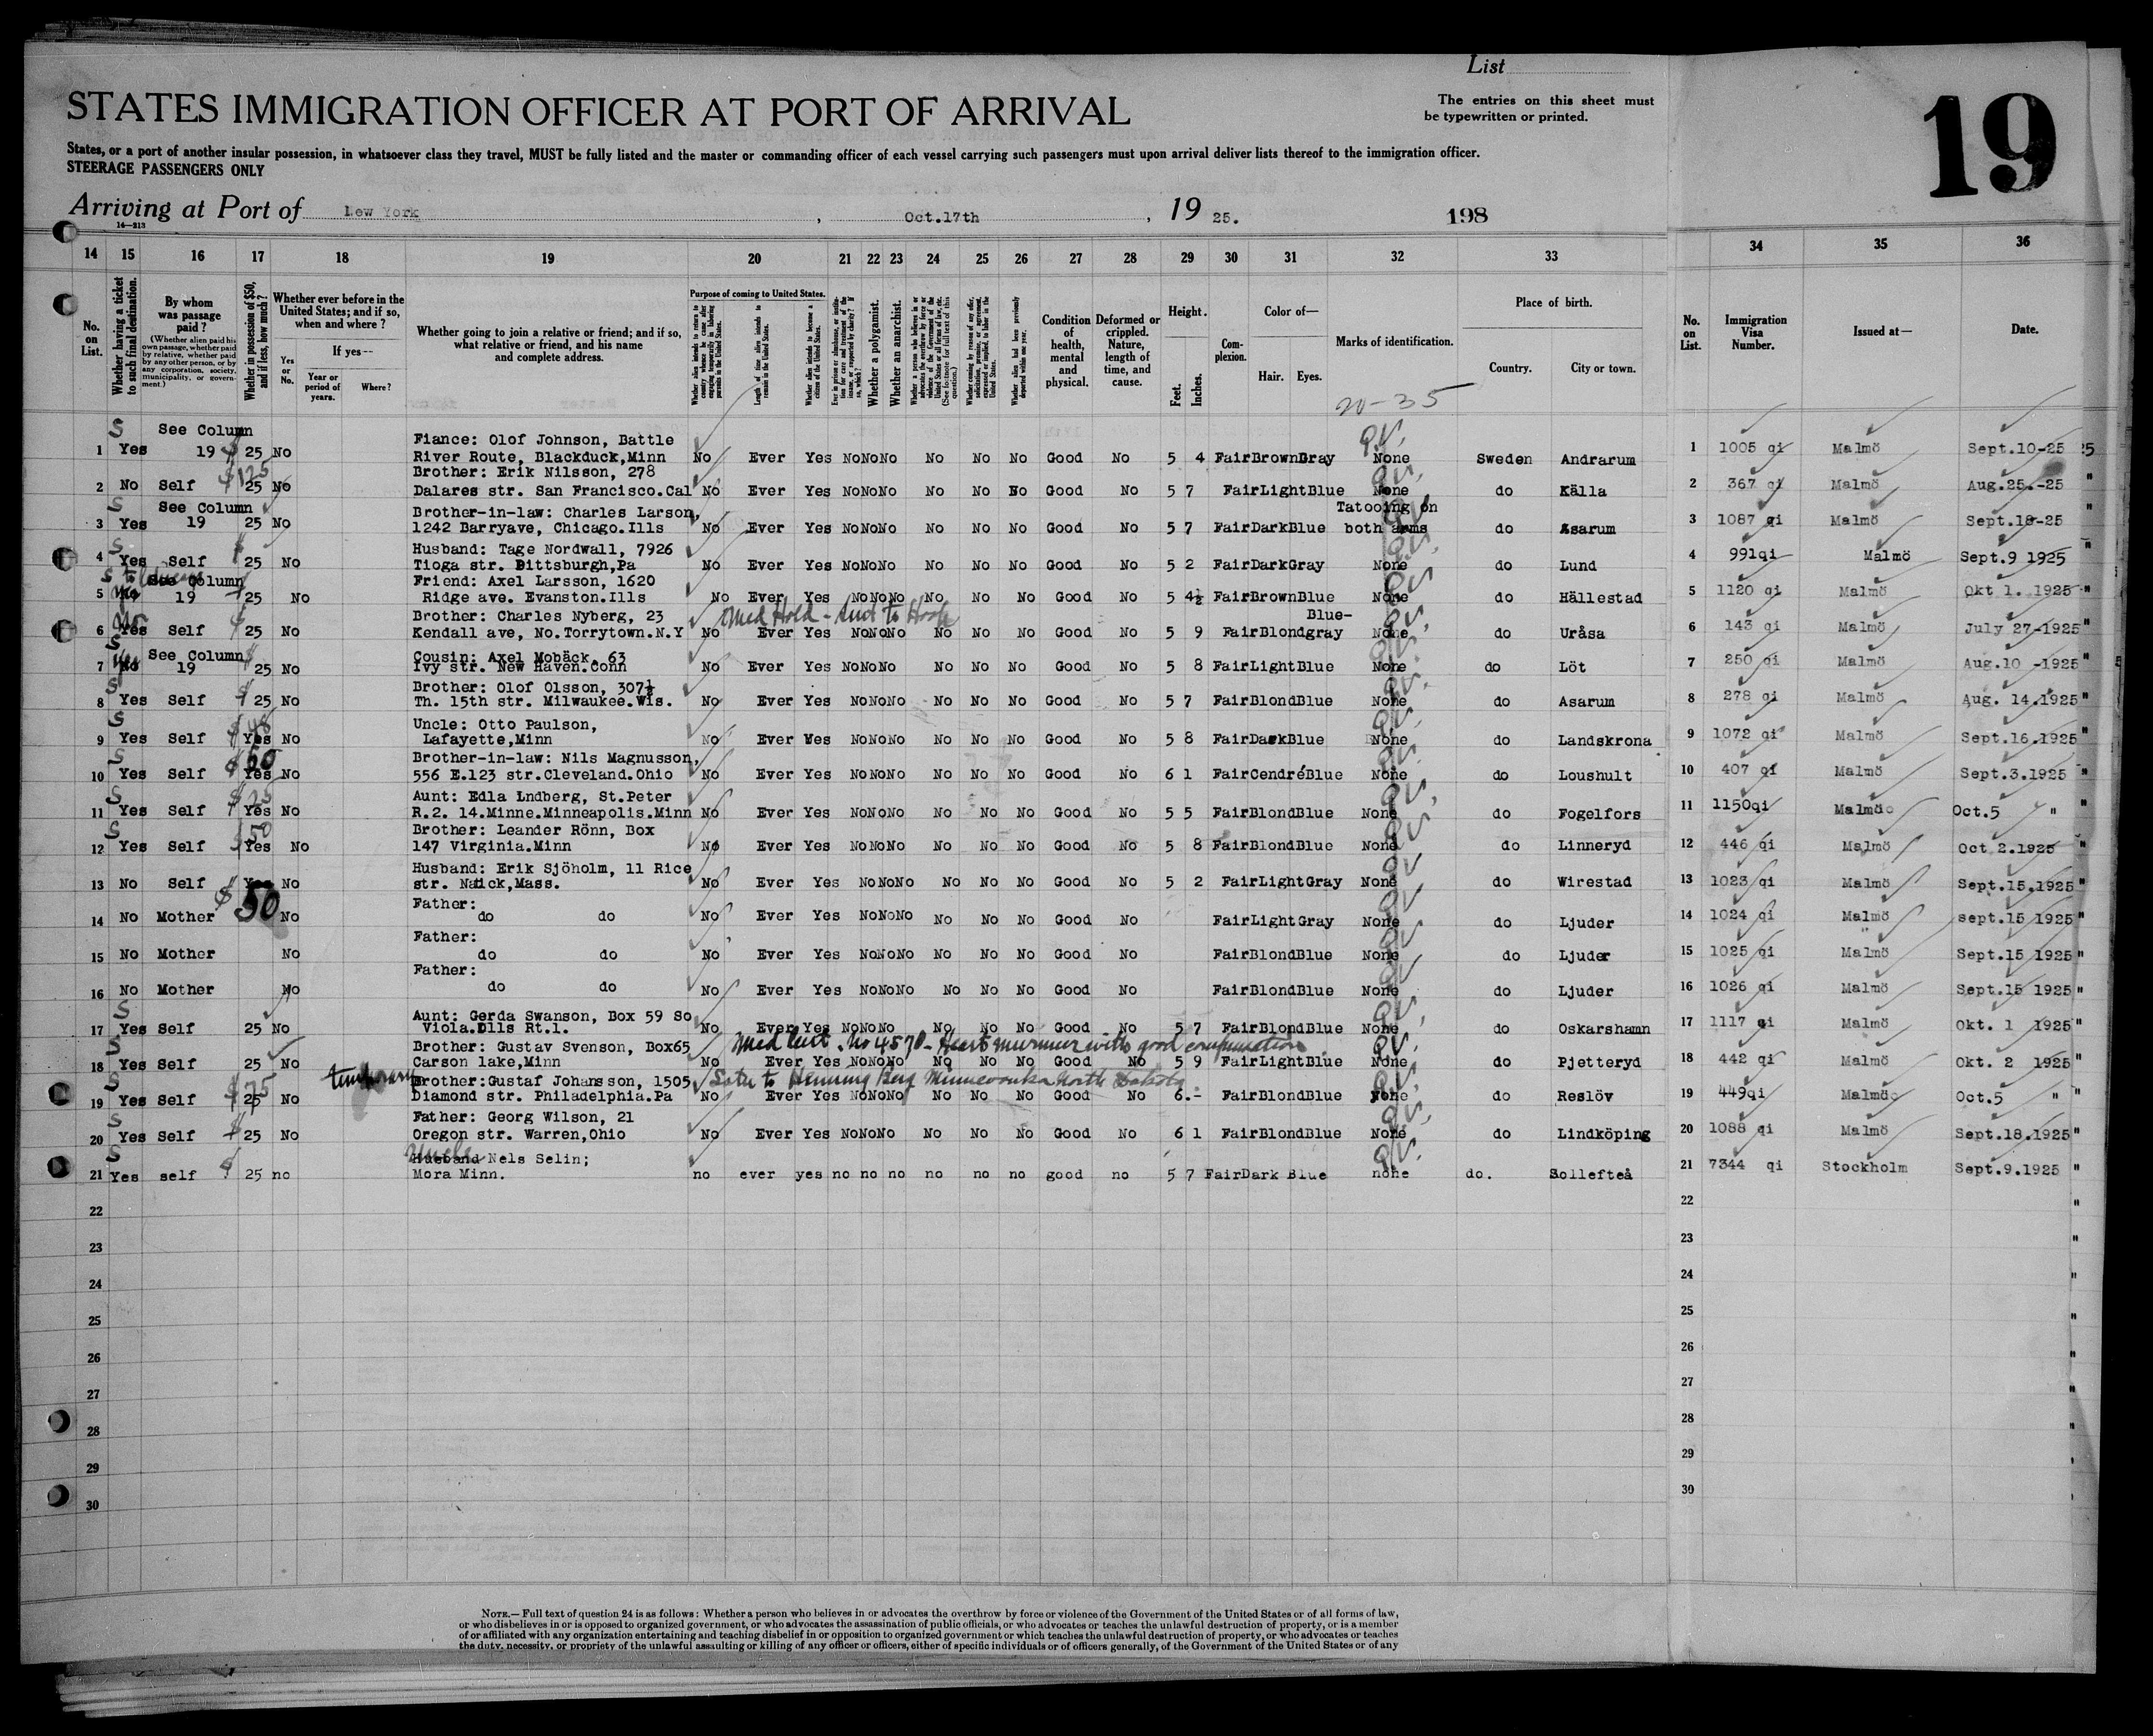 List
STATES IMMIGRATION OFFICER AT PORT OF ARRIVAL
The entries on this sheet must
be typewritten or printed.
19
States, or a port of another insular possession, in whatsoever class they travel, MUST be fully listed and the master or commanding officer of each vessel carrying such passengers must upon arrival deliver lists thereof to the immigration officer.
STEERAGE PASSENGERS ONLY
Arriving at Port of New York, Oct.17th, 19 25. 198
14—213
14 15 16 17 18 19 20 21 22 23 24 25 26 27 28 29 30 31 32 33 34 35 36
No. on List.
Whether having a ticket to such final destination.
By whom was passage paid?
(Whether alien paid his own passage, whether paid by relative, whether paid by any other person, or by any corporation, society, municipality, or government.)
Whether in possession of $50, and if less, how much?
Whether ever before in the United States; and if so, when and where?
Yes or No.
If yes—
Year or period of years.
Where?
Whether going to join a relative or friend; and if so, what relative or friend, and his name and complete address.
Purpose of coming to United States.
Length of time alien intends to remain in the United States.
Whether alien intends to become a citizen of the United States.
Whether a polygamist.
Whether an anarchist.
Condition of health, mental and physical.
Deformed or crippled. Nature, length of time, and cause.
Height.
Feet. Inches.
Complexion.
Color of—
Hair. Eyes.
Marks of identification.
20-35
Place of birth.
Country. City or town.
No. on List.
Immigration Visa Number.
Issued at—
Date.
See Column Fiance: Olof Johnson, Battle
1 Yes 19 25 No River Route, Blackduck,Minn No Ever Yes No No No No No No Good No 5 4 Fair Brown Gray None Sweden Andrarum 1 1005 qi Malmö Sept.10-25
$125 Brother: Erik Nilsson, 278
2 No Self 25 No Dalares str. San Francisco.Cal No Ever Yes No No No No No No Good No 5 7 Fair Light Blue None do Källa 2 367 qi Malmö Aug.25.-25
See Column Brother-in-law: Charles Larson, Tatooing on
3 Yes 19 25 No 1242 Barryave, Chicago.Ills No Ever Yes No No No No No No Good No 5 7 Fair Dark Blue both arms do Asarum 3 1087 qi Malmö Sept.18-25
Husband: Tage Nordwall, 7926
4 Yes Self 25 No Tioga str. Pittsburgh,Pa No Ever Yes No No No No No No Good No 5 2 Fair Dark Gray None do Lund 4 991qi Malmö Sept.9 1925
See Column Friend: Axel Larsson, 1620
5 19 25 No Ridge ave. Evanston.Ills No Ever Yes No No No No No No Good No 5 4½ Fair Brown Blue None do Hällestad 5 1120 qi Malmö Okt 1. 1925
Brother: Charles Nyberg, 23 Med Hold - Sent to Hosp Blue-
6 Yes Self 25 No Kendall ave, No.Torrytown.N.Y No Ever Yes No No No No No No Good No 5 9 Fair Blond gray None do Uråsa 6 143 qi Malmö July 27-1925
See Column Cousin: Axel Mobäck, 63
7 Yes 19 25 No Ivy str. New Haven.Conn No Ever Yes No No No No No No Good No 5 8 Fair Light Blue None do Löt 7 250 qi Malmö Aug.10 -1925
Brother: Olof Olsson, 307½
8 Yes Self 25 No Th. 15th str. Milwaukee.Wis. No Ever Yes No No No No No No Good No 5 7 Fair Blond Blue None do Asarum 8 278 qi Malmö Aug. 14.1925
Uncle: Otto Paulson,
9 Yes Self Yes No Lafayette,Minn No Ever Yes No No No No No No Good No 5 8 Fair Dark Blue None do Landskrona 9 1072 qi Malmö Sept.16.1925
60 Brother-in-law: Nils Magnusson,
10 Yes Self Yes No 556 E.123 str.Cleveland.Ohio No Ever Yes No No No No No No Good No 6 1 Fair Cendré Blue None do Loushult 10 407 qi Malmö Sept.3.1925
Aunt: Edla Lndberg, St.Peter
11 Yes Self Yes No R.2. 14.Minne.Minneapolis.Minn No Ever Yes No No No No No No Good No 5 5 Fair Blond Blue None do Fogelfors 11 1150qi Malmö Oct.5 "
$50 Brother: Leander Rönn, Box
12 Yes Self Yes No 147 Virginia.Minn No Ever Yes No No No No No No Good No 5 8 Fair Blond Blue None do Linneryd 12 446 qi Malmö Oct 2.1925
Husband: Erik Sjöholm, 11 Rice
13 No Self Yes No str. Natick,Mass. No Ever Yes No No No No No No Good No 5 2 Fair Light Gray None do Wirestad 13 1023 qi Malmö Sept.15.1925
$50 Father:
14 No Mother No do do No Ever Yes No No No No No No Good No Fair Light Gray None do Ljuder 14 1024 qi Malmö sept.15 1925
Father:
15 No Mother No do do No Ever Yes No No No No No No Good No Fair Blond Blue None do Ljuder 15 1025 qi Malmö Sept.15 1925
Father:
16 No Mother No do do No Ever Yes No No No No No No Good No Fair Blond Blue None do Ljuder 16 1026 qi Malmö Sept.15 1925
Aunt: Gerda Swanson, Box 59 So
17 Yes Self 25 No Viola.Ills Rt.1. No Ever Yes No No No No No No Good No 5 7 Fair Blond Blue None do Oskarshamn 17 1117 qi Malmö Okt. 1 1925
Brother: Gustav Svenson, Box65 Med Cert. No 4570 - Heart murmur with good compensation
18 Yes Self 25 No Carson lake,Minn No Ever Yes No No No No No No Good No 5 9 Fair Light Blue None do Pjetteryd 18 442 qi Malmö Okt. 2 1925
$75 temporary Brother:Gustaf Johansson, 1505 Later to Henning Berg Minnewauka North Dakota
19 Yes Self 25 No Diamond str. Philadelphia.Pa No Ever Yes No No No No No No Good No 6.- Fair Blond Blue None do Reslöv 19 449qi Malmö Oct.5 "
Father: Georg Wilson, 21
20 Yes Self 25 No Oregon str. Warren,Ohio No Ever Yes No No No No No No Good No 6 1 Fair Blond Blue None do Lindköping 20 1088 qi Malmö Sept.18.1925
Uncle
Husband Nels Selin;
21 Yes self 25 no Mora Minn. no ever yes no no no no no no good no 5 7 Fair Dark Blue none do. Sollefteå 21 7344 qi Stockholm Sept.9.1925
22 22
23 23
24 24
25 25
26 26
27 27
28 28
29 29
30 30
NOTE.—Full text of question 24 is as follows: Whether a person who believes in or advocates the overthrow by force or violence of the Government of the United States or of all forms of law,
or who disbelieves in or is opposed to organized government, or who advocates the assassination of public officials, or who advocates or teaches the unlawful destruction of property, or is a member
of or affiliated with any organization entertaining and teaching disbelief in or opposition to organized government or which teaches the unlawful destruction of property, or who advocates or teaches
the duty, necessity, or propriety of the unlawful assaulting or killing of any officer or officers, either of specific individuals or of officers generally, of the Government of the United States or of any